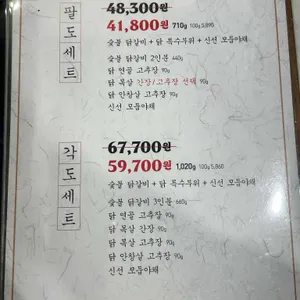 팔도세트
48,300원
41,800원 710g 100g 5,890
숯불 닭갈비 + 닭 특수부위 + 신선 모둠야채
숯불 닭갈비 2인분 440g
닭 연골 고추장 90g
닭 목살 간장/고추장 선택 90g
닭 안창살 고추장 90g
신선 모둠야채
각도세트
67,700원
59,700원 1,020g 100g 5,860
숯불 닭갈비 + 닭 특수부위 + 신선 모둠야채
숯불 닭갈비 3인분 660g
닭 연골 고추장 90g
닭 목살 간장 90g
닭 목살 고추장 90g
닭 안창살 고추장 90g
신선 모둠야채